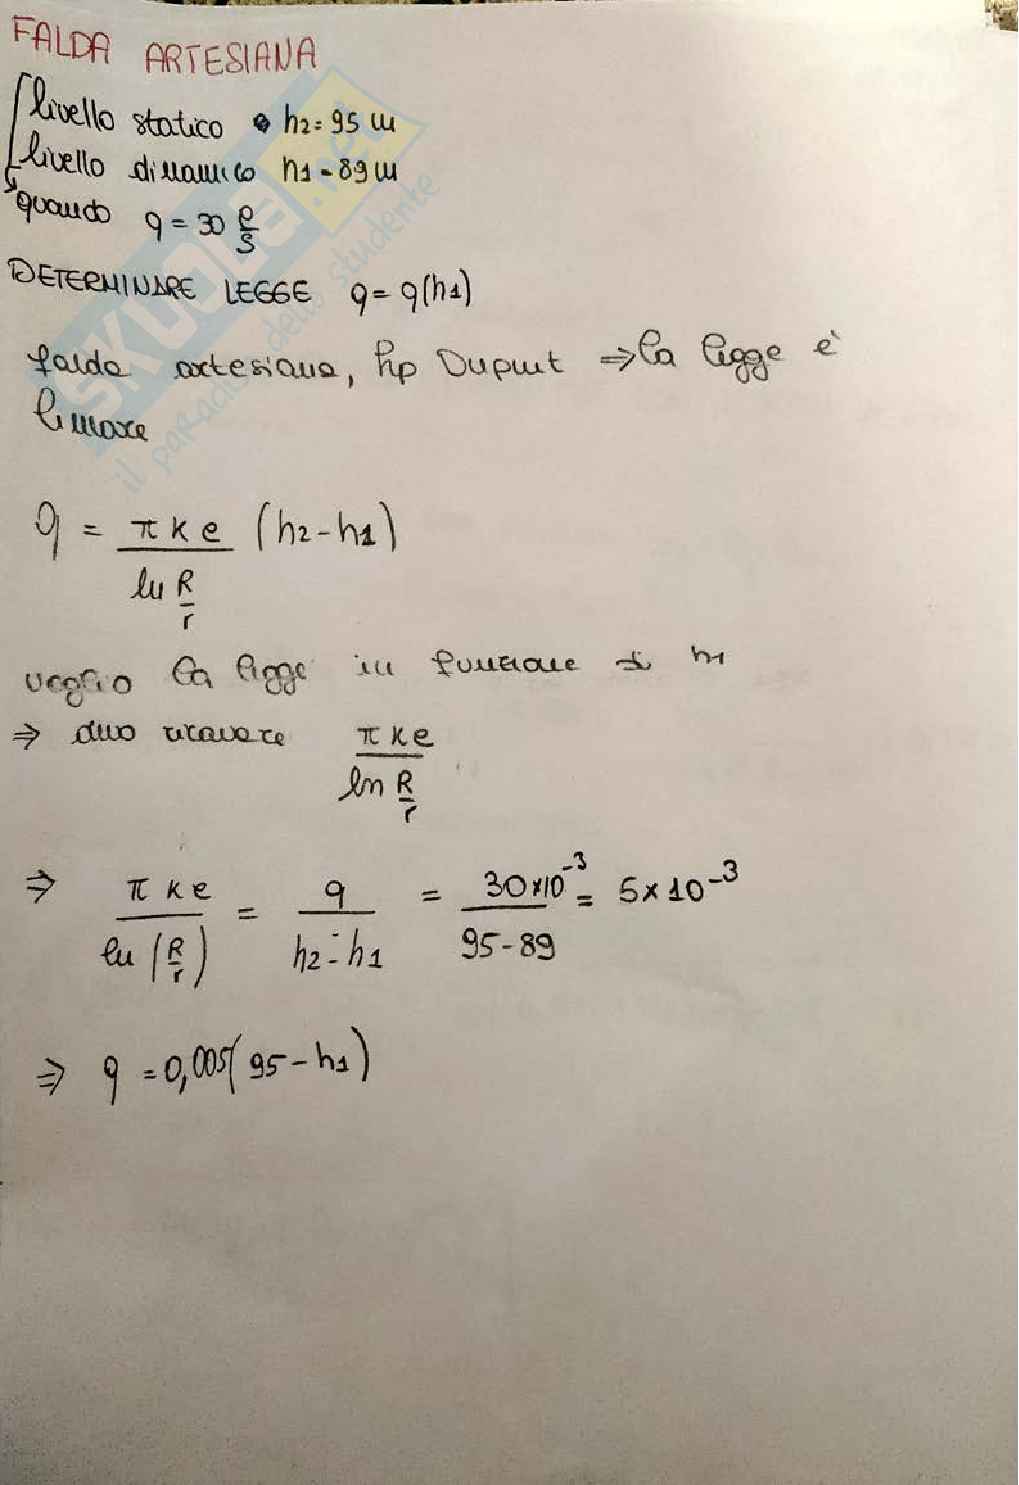 FALDA ARTESIANA
livello statico h2 = 95 m
livello dinamico h1 = 89 m
quando q = 30 l/s
DETERMINARE LEGGE q = q(h1)
falda artesiana, hp Dupuit ⇒ la legge è
lineare
q = π k e / ln R/r (h2 - h1)
voglio la legge in funzione di h1
⇒ devo ricavare π k e / ln R/r
⇒ π k e / ln (R/r) = q / h2 - h1 = 30×10^-3 / 95-89 = 5×10^-3
⇒ q = 0,005(95 - h1)
SKUOLA.net
il paradiso dello studente